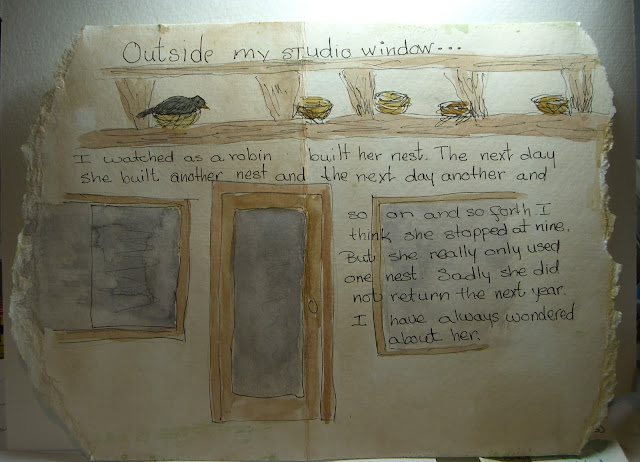 Outside my studio window...
I watched as a robin built her nest. The next day
she built another nest and the next day another and
so on and so forth. I
think she stopped at nine.
But she really only used
one nest. Sadly she did
not return the next year.
I have always wondered
about her.